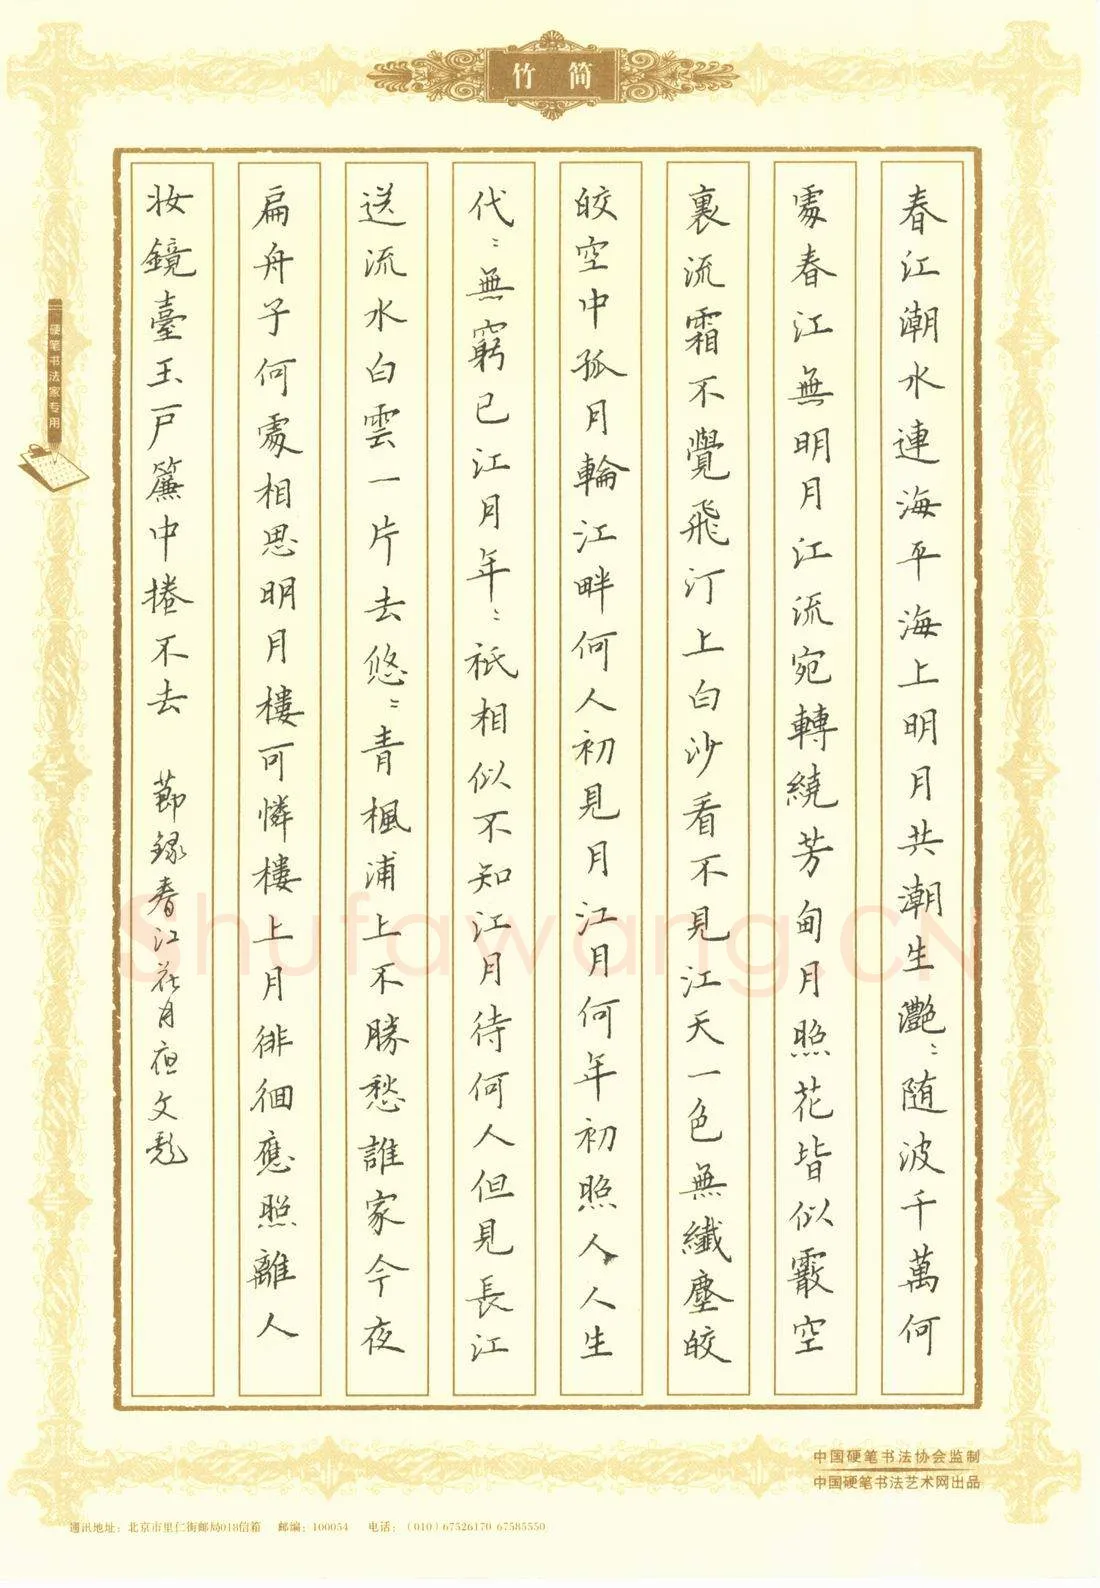 竹简
春江潮水連海平海上明月共潮生灩:随波千萬何
處春江無明月江流宛轉繞芳甸月照花皆似霰空
裏流霜不覺飛汀上白沙看不見江天一色無纖塵皎
皎空中孤月輪江畔何人初見月江月何年初照人人生
代:無窮已江月年:祇相似不知江月待何人但見長江
送流水白雲一片去悠:青楓浦上不勝愁誰家今夜
扁舟子何處相思明月樓可憐樓上月徘徊應照離人
妝鏡臺玉戶簾中捲不去 節錄春江花月夜文彪
硬笔书法家专用
Shufawang.CN
中国硬笔书法协会监制
中国硬笔书法艺术网出品
通讯地址：北京市里仁街邮局018信箱 邮编：100054 电话：（010）67526170 67585550